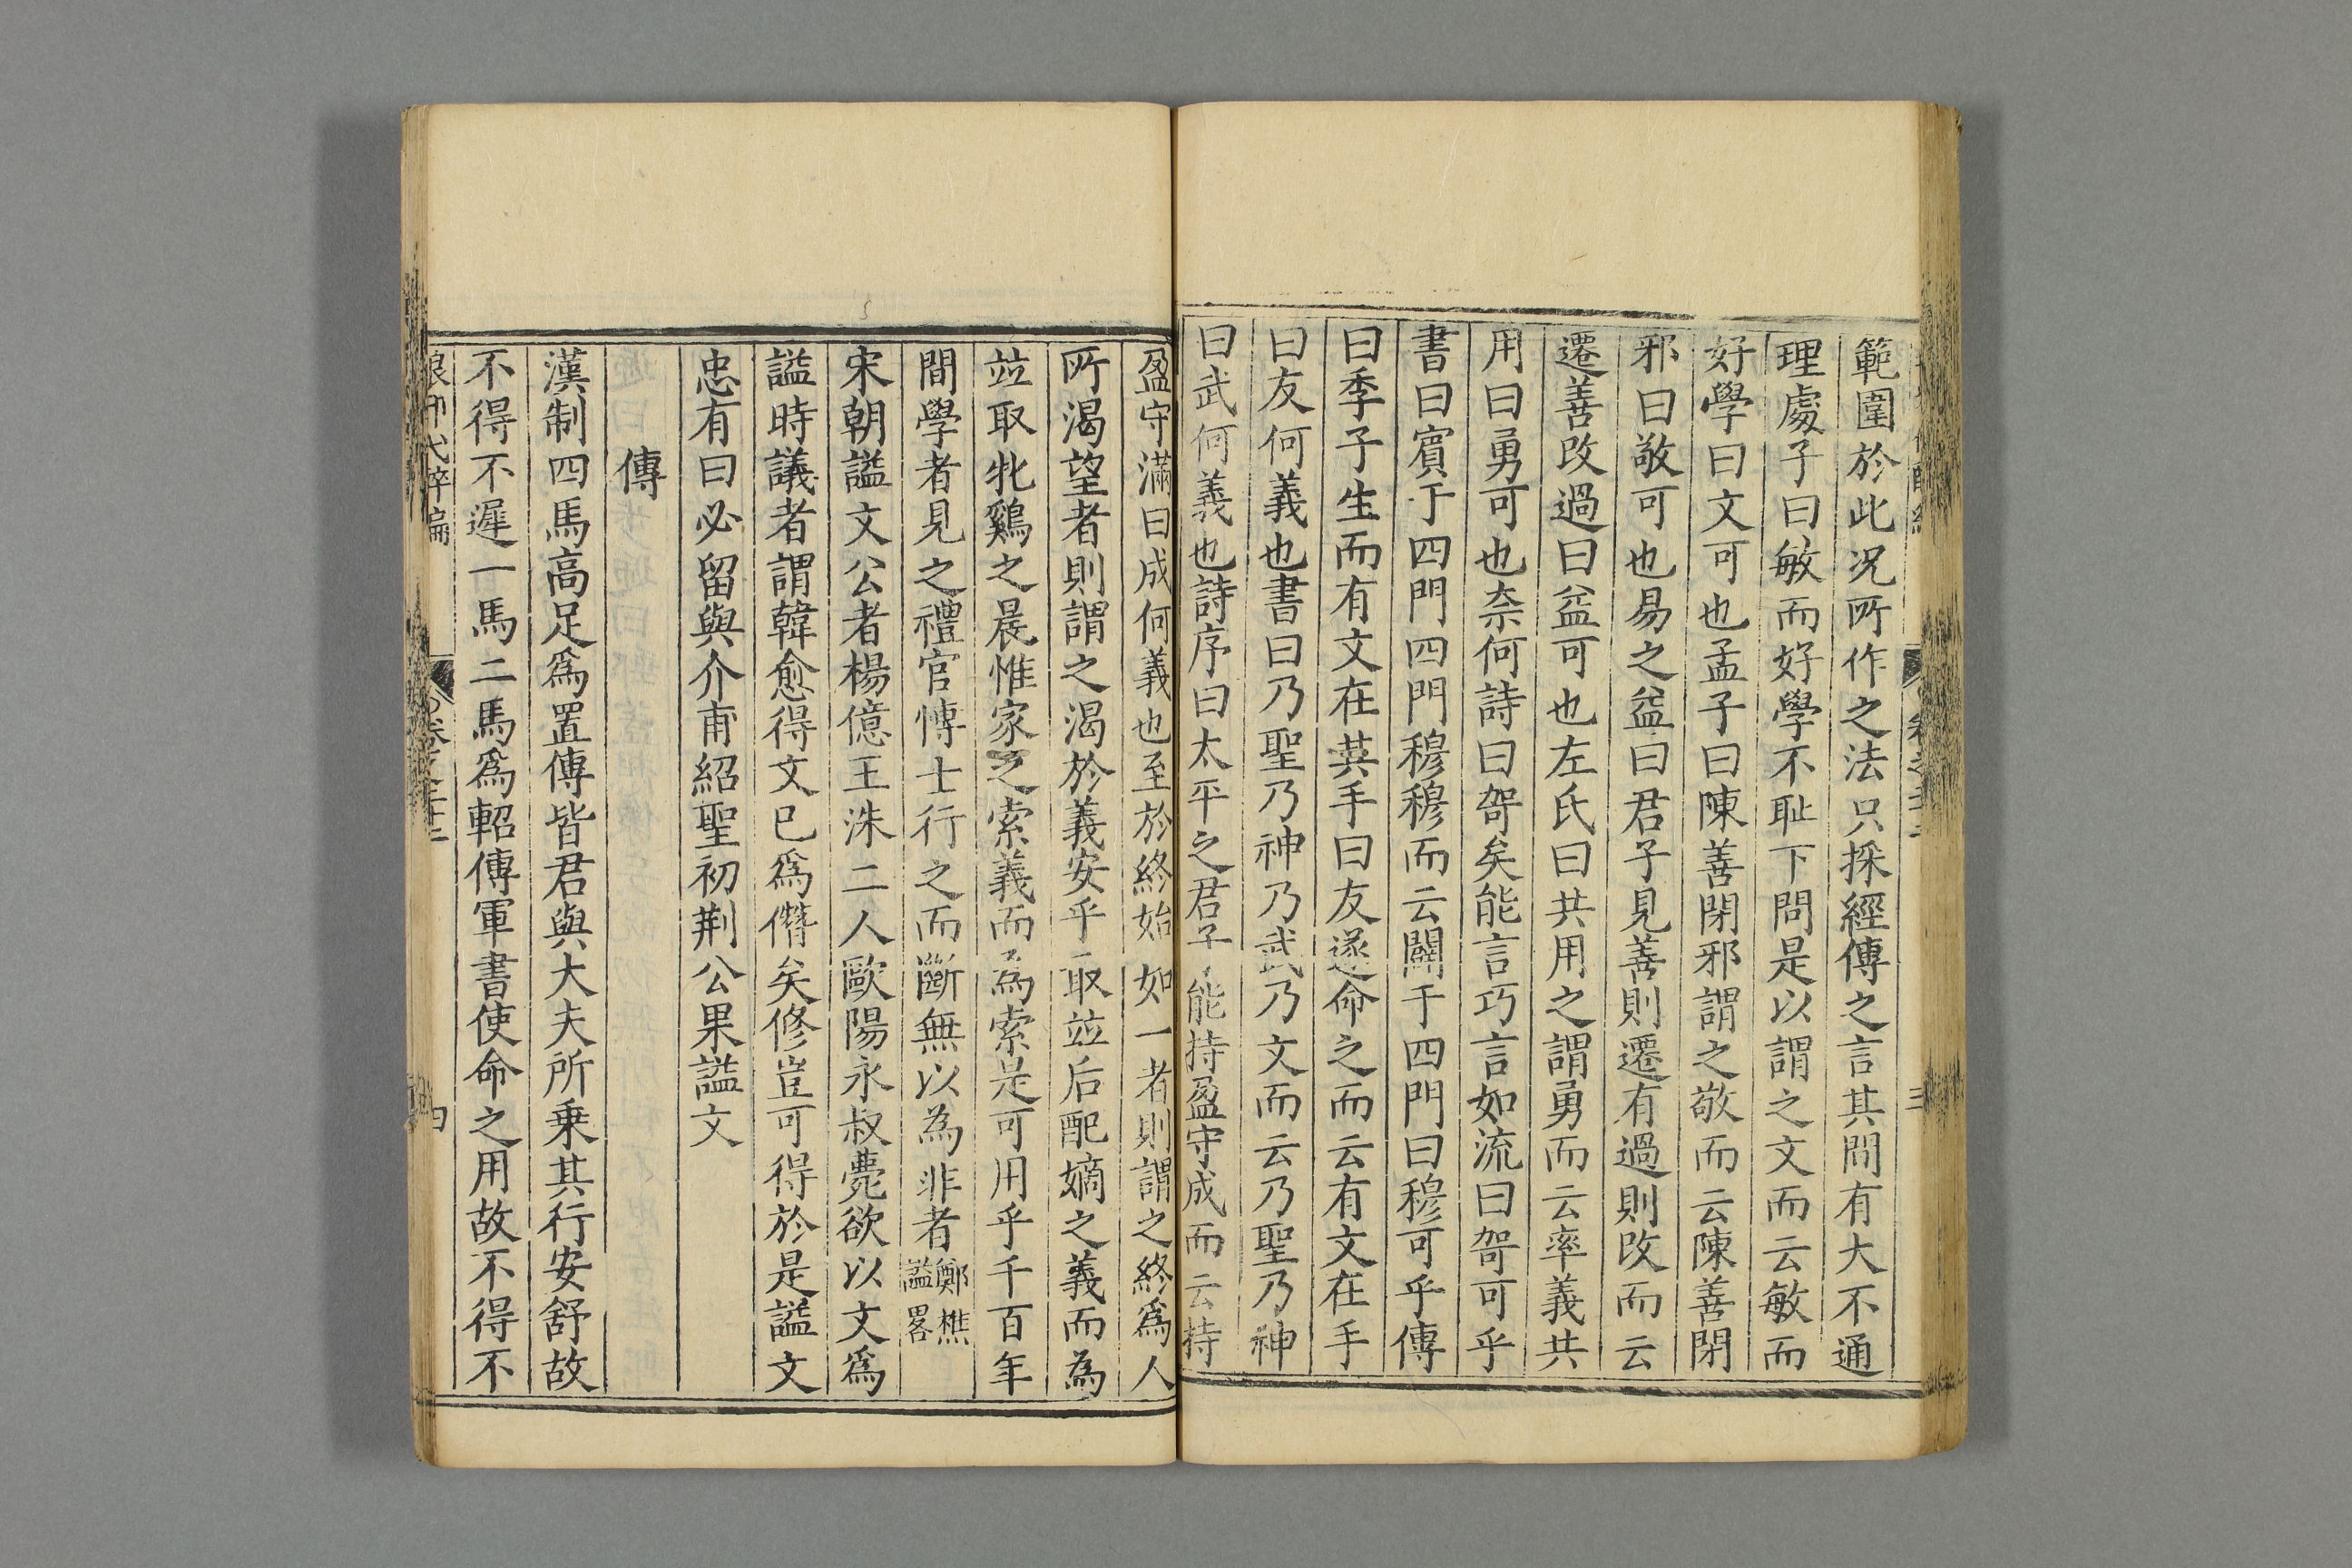 範圍於此況所作之法只採經傳之言其間有大不通
理處子曰敏而好學不恥下問是以謂之文而云敏而
好學曰文可也孟子曰陳善閉邪謂之敬而云陳善閉
邪曰敬可也易之益曰君子見善則遷有過則改而云
遷善改過曰益可也左氏曰共用之謂勇而云率義共
用曰勇可也奈何詩曰哿矣能言巧言如流曰哿可乎
書曰賓于四門四門穆穆而云闢于四門曰穆可乎傳
曰季子生而有文在其手曰友遂命之而云有文在手
曰友何義也書曰乃聖乃神乃武乃文而云乃聖乃神
曰武何義也詩序曰太平之君子能持盈守成而云持
盈守滿曰成何義也至於終始如一者則謂之終為人
所渴望者則謂之渴於義安乎取竝后配嫡之義而為
竝取牝鷄之晨惟家之索義而為索是可用乎千百年
間學者見之禮官博士行之而斷無以為非者鄭樵謚畧
宋朝謚文公者楊億王洙二人歐陽永叔薨欲以文爲
謚時議者謂韓愈得文已爲僭矣修豈可得於是謚文
忠有曰必留與介甫紹聖初荆公果謚文
傳
漢制四馬高足爲置傳皆君與大夫所乗其行安舒故
不得不遲一馬二馬爲軺傳軍書使命之用故不得不
琅邪代醉編
四